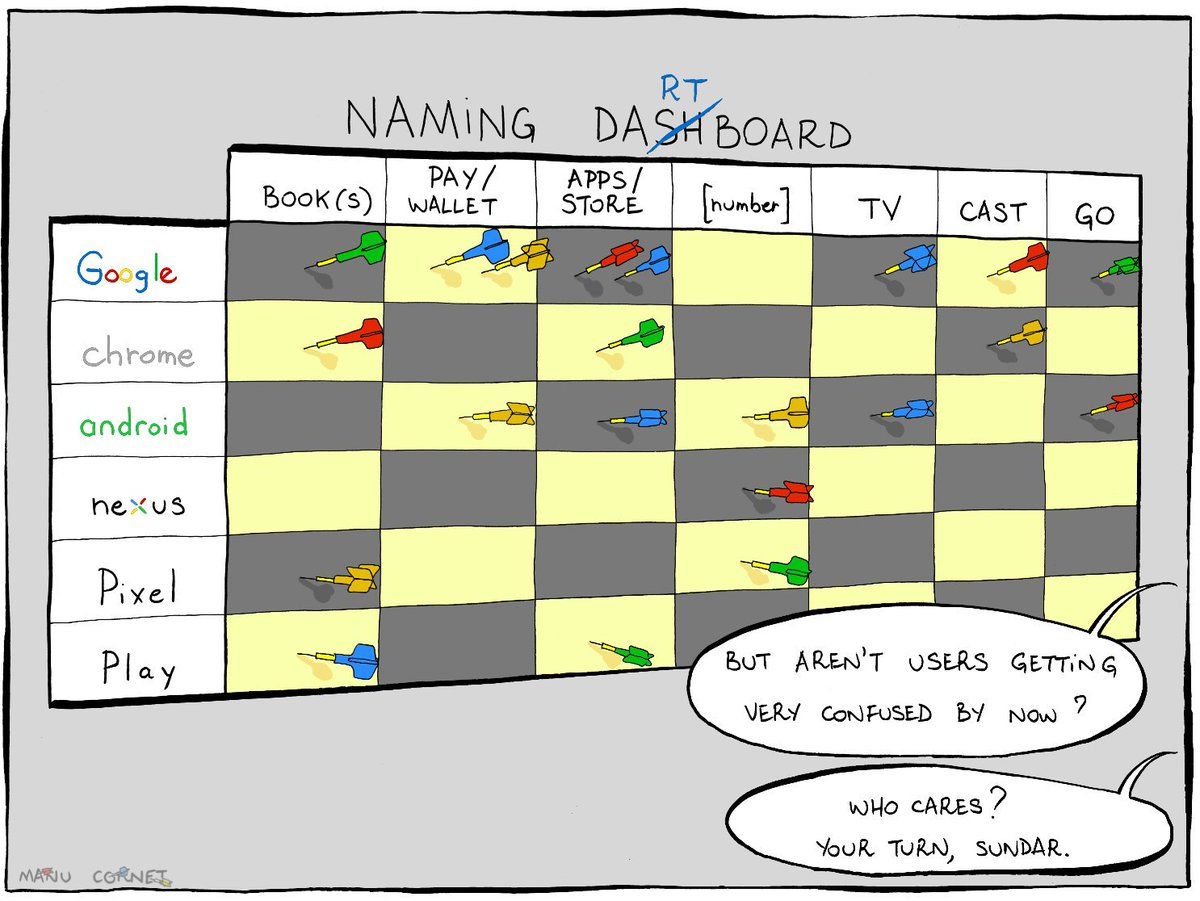 RT
NAMING DASHBOARD
BOOK(S) PAY/ WALLET APPS/ STORE [number] TV CAST GO
Google
chrome
android
nexus
Pixel
Play
BUT AREN'T USERS GETTING
VERY CONFUSED BY NOW?
WHO CARES?
YOUR TURN, SUNDAR.
MANU CORNET